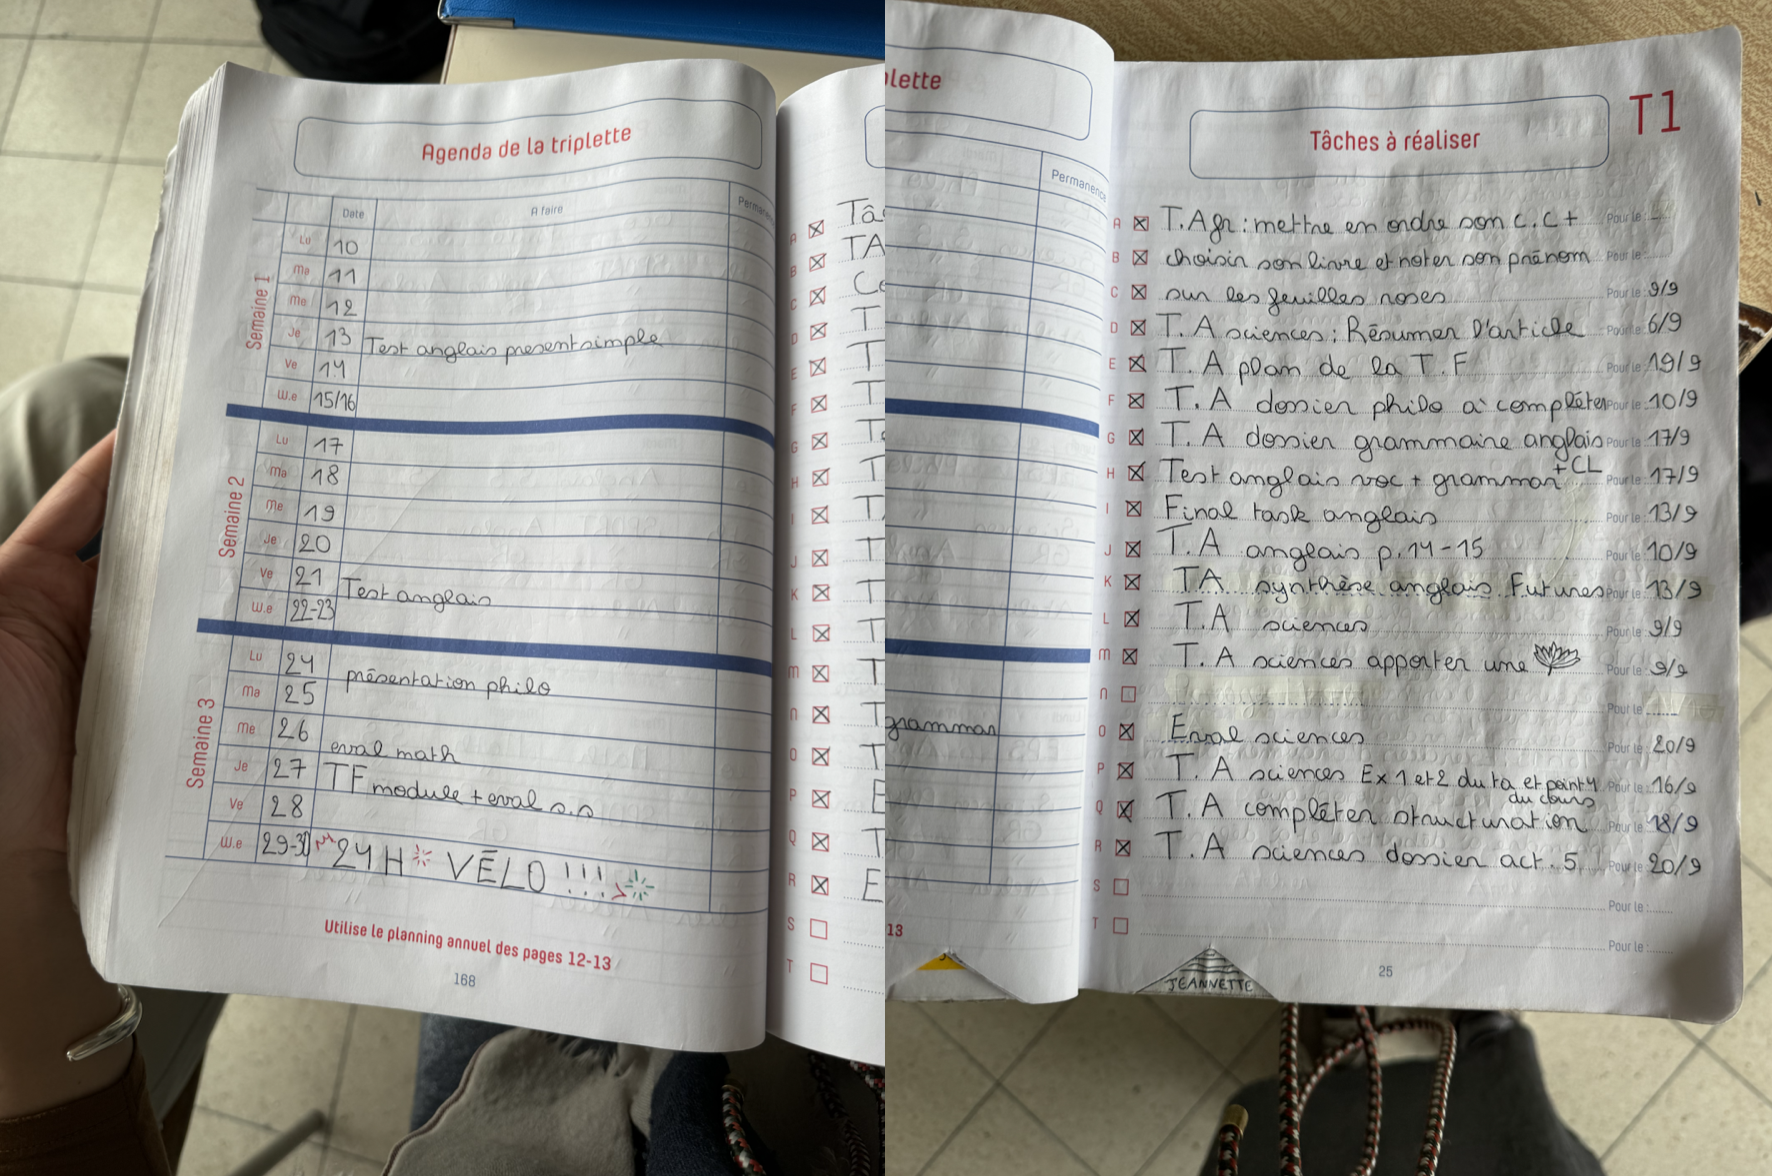 Agenda de la triplette
Date A faire Perman
Semaine 1
Lu 10
ma 11
me 12
Je 13 Test anglais present simple
Ve 14
W.e 15/16
Semaine 2
Lu 17
ma 18
me 19
Je 20
Ve 21 Test anglais
W.e 22-23
Semaine 3
Lu 24 présentation philo
Ma 25
Me 26 eval math
Je 27 TF module + eval s.s
Ve 28
W.e 29-30 24H VÉLO !!!
Utilise le planning annuel des pages 12-13
168
A Tâ
B TA
C Co
D T
E T
F T
G Te
H T
I T
J T
K T
L T
m T
n T
O T
P E
Q T
R E
S
T
lette
Permanence
grammar
13
T1
Tâches à réaliser
A T.A fr : mettre en ordre son c.c + Pour le :
B choisir son livre et noter son prénom Pour le :
C sur les feuilles roses Pour le : 9/9
D T. A sciences : Résumer l'article Pour le : 6/9
E T. A plan de la T. F Pour le : 19/9
F T. A dossier philo à compléter Pour le : 10/9
G T. A dossier grammaire anglais Pour le : 17/9
H Test anglais voc + grammar + CL Pour le : 17/9
I Final task anglais Pour le : 13/9
J T. A anglais p.14-15 Pour le : 10/9
K TA synthèse anglais Futures Pour le : 13/9
L T. A sciences Pour le : 9/9
m T. A sciences apporter une Pour le : 9/9
n Pour le :
O Eval sciences Pour le : 20/9
P T. A sciences Ex 1 et 2 du ta et point 4 du cours Pour le : 16/9
Q T. A compléter structuration Pour le : 18/9
R T. A sciences dossier act. 5 Pour le : 20/9
S Pour le :
T Pour le :
25
JEANNETTE